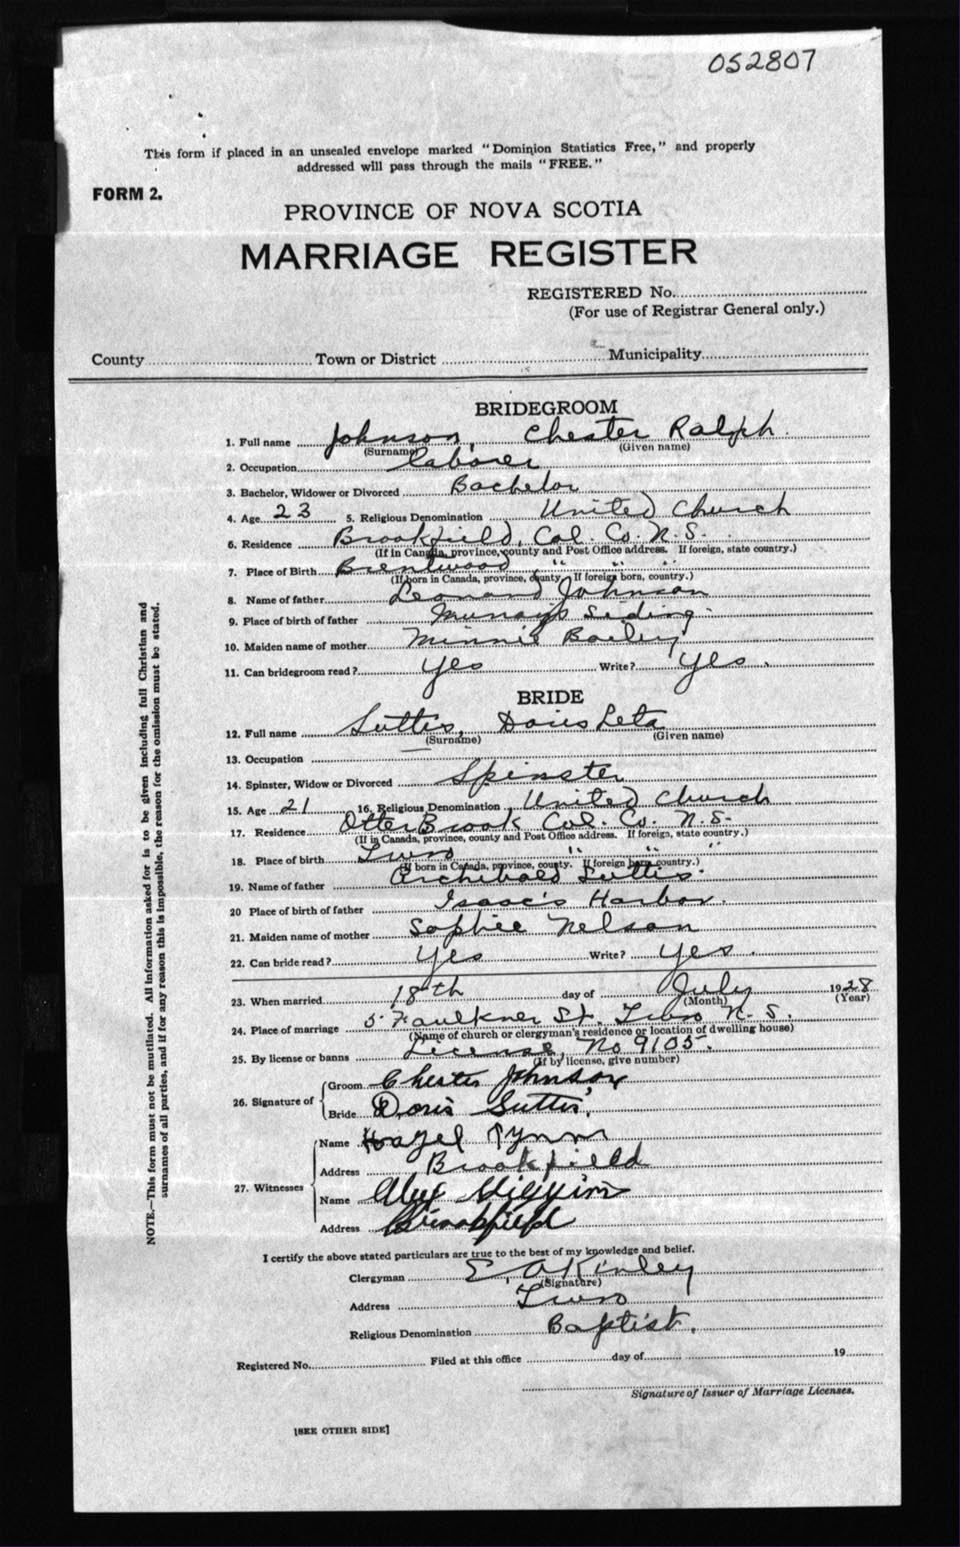 052807
This form if placed in an unsealed envelope marked "Dominion Statistics Free," and properly
addressed will pass through the mails "FREE."
FORM 2.
PROVINCE OF NOVA SCOTIA
MARRIAGE REGISTER
REGISTERED No.
(For use of Registrar General only.)
County Town or District Municipality
BRIDEGROOM
1. Full name Johnson, Chester Ralph.
(Surname) (Given name)
2. Occupation laborer
3. Bachelor, Widower or Divorced Bachelor
4. Age 23 5. Religious Denomination United Church
6. Residence Brookfield, Col. Co. N.S.
(If in Canada, province, county and Post Office address. If foreign, state country.)
7. Place of Birth Brentwood " " "
(If born in Canada, province, county. If foreign born, country.)
8. Name of father Leonard Johnson
9. Place of birth of father Murrays Siding.
10. Maiden name of mother Minnie Bailey
11. Can bridegroom read? Yes Write? Yes.
BRIDE
12. Full name Suttis, Doris Leta
(Surname) (Given name)
13. Occupation
14. Spinster, Widow or Divorced Spinster
15. Age 21 16. Religious Denomination United Church
17. Residence Otter Brook Col. Co. N.S.
(If in Canada, province, county and Post Office address. If foreign, state country.)
18. Place of birth Truro " " "
(If born in Canada, province, county. If foreign born, country.)
19. Name of father Archibald Suttis.
20 Place of birth of father Isaac's Harbor.
21. Maiden name of mother Sophie Nelson
22. Can bride read? Yes Write? Yes.
23. When married 18th day of July 1928
(Month) (Year)
24. Place of marriage 5 Faulkner St. Truro N.S.
(Name of church or clergyman's residence or location of dwelling house)
25. By license or banns License, No 9105.
(If by license, give number)
26. Signature of Groom Chester Johnson
Bride Doris Suttis.
27. Witnesses Name Hazel Tynn
Address Brookfield
Name Alex Higgins
Address Brookfield
I certify the above stated particulars are true to the best of my knowledge and belief.
Clergyman E. A. Kinley
(Signature)
Address Truro
Religious Denomination Baptist.
Registered No. Filed at this office day of 19
Signature of Issuer of Marriage Licenses.
[SEE OTHER SIDE]
NOTE.—This form must not be mutilated. All information asked for is to be given including full Christian and
surnames of all parties, and if for any reason this is impossible, the reason for the omission must be stated.